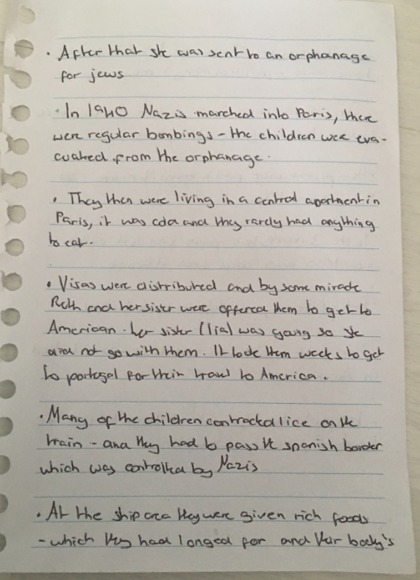 · After that she was sent to an orphanage
for jews
· In 1940 Nazis marched into Paris, there
were regular bombings - the children were eva-
cuated from the orphanage.
· They then were living in a central apartment in
Paris, it was cold and they rarely had anything
to eat.
· Visas were distributed and by some miracle
Ruth and her sister were offered them to get to
American. her sister (lia) was young so she
did not go with them. It took them weeks to get
to portugal for their travel to America.
· Many of the children contracted lice on the
train - and they had to pass the spanish border
which was controlled by Nazis
· At the ship they were given rich foods
- which they had longed for and their body's